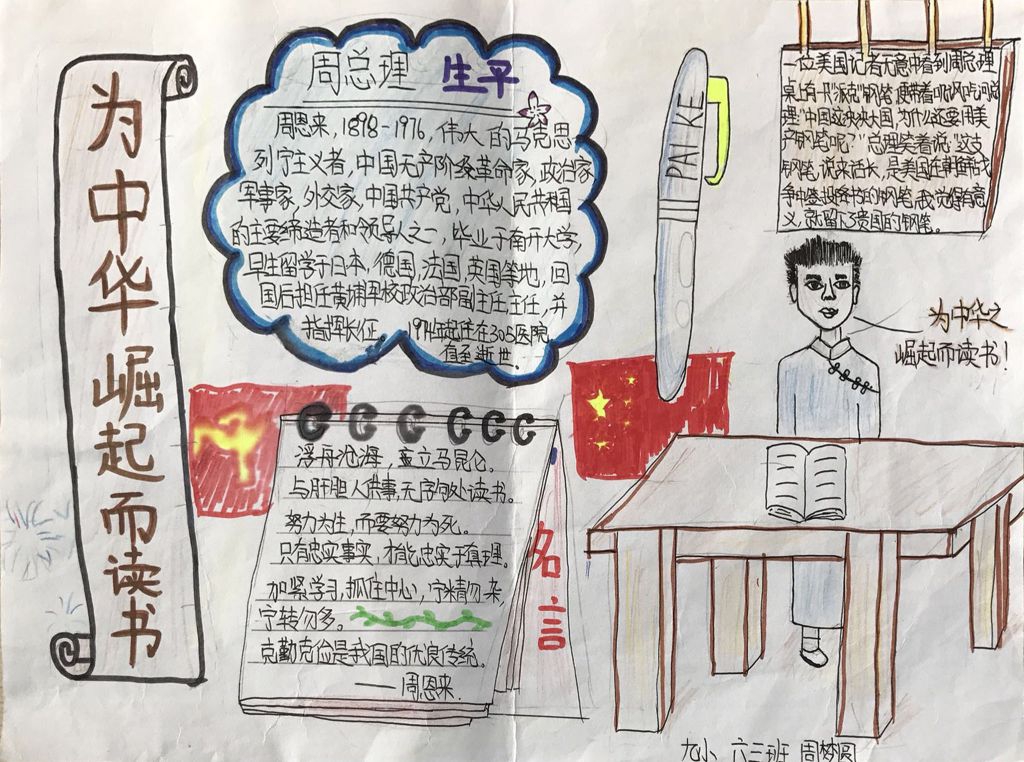 为中华崛起而读书
周总理 生平
周恩来,1898-1976,伟大的马克思
列宁主义者,中国无产阶级革命家,政治家
军事家,外交家,中国共产党,中华人民共和国
的主要缔造者和领导人之一,毕业于南开大学,
早年留学于日本,德国,法国,英国等地,回
国后担任黄埔军校政治部副主任,主任,并
指挥长征。1974年起住在305医院
直至逝世
PAI KE
一位美国记者无意中看到周总理
桌上有一卡"派克"钢笔,便带着
理:"中国这泱泱大国,为什么还要用美
产钢笔呢?"总理笑着说:"这支
钢笔,说来话长,是美国在朝鲜战
争中签投降书的钢笔,我觉得有意
义,就留下了贵国的钢笔。
为中华之
崛起而读书!
浮舟沧海,立马昆仑。
与肝胆人共事,无字句处读书。
努力为生,而要努力为死。
只有忠实事实,才能忠实于真理。
加紧学习,抓住中心,宁精勿杂,
宁转勿多。
克勤克俭是我国的优良传统。
——周恩来
名言
九小 六三班 周梦圆